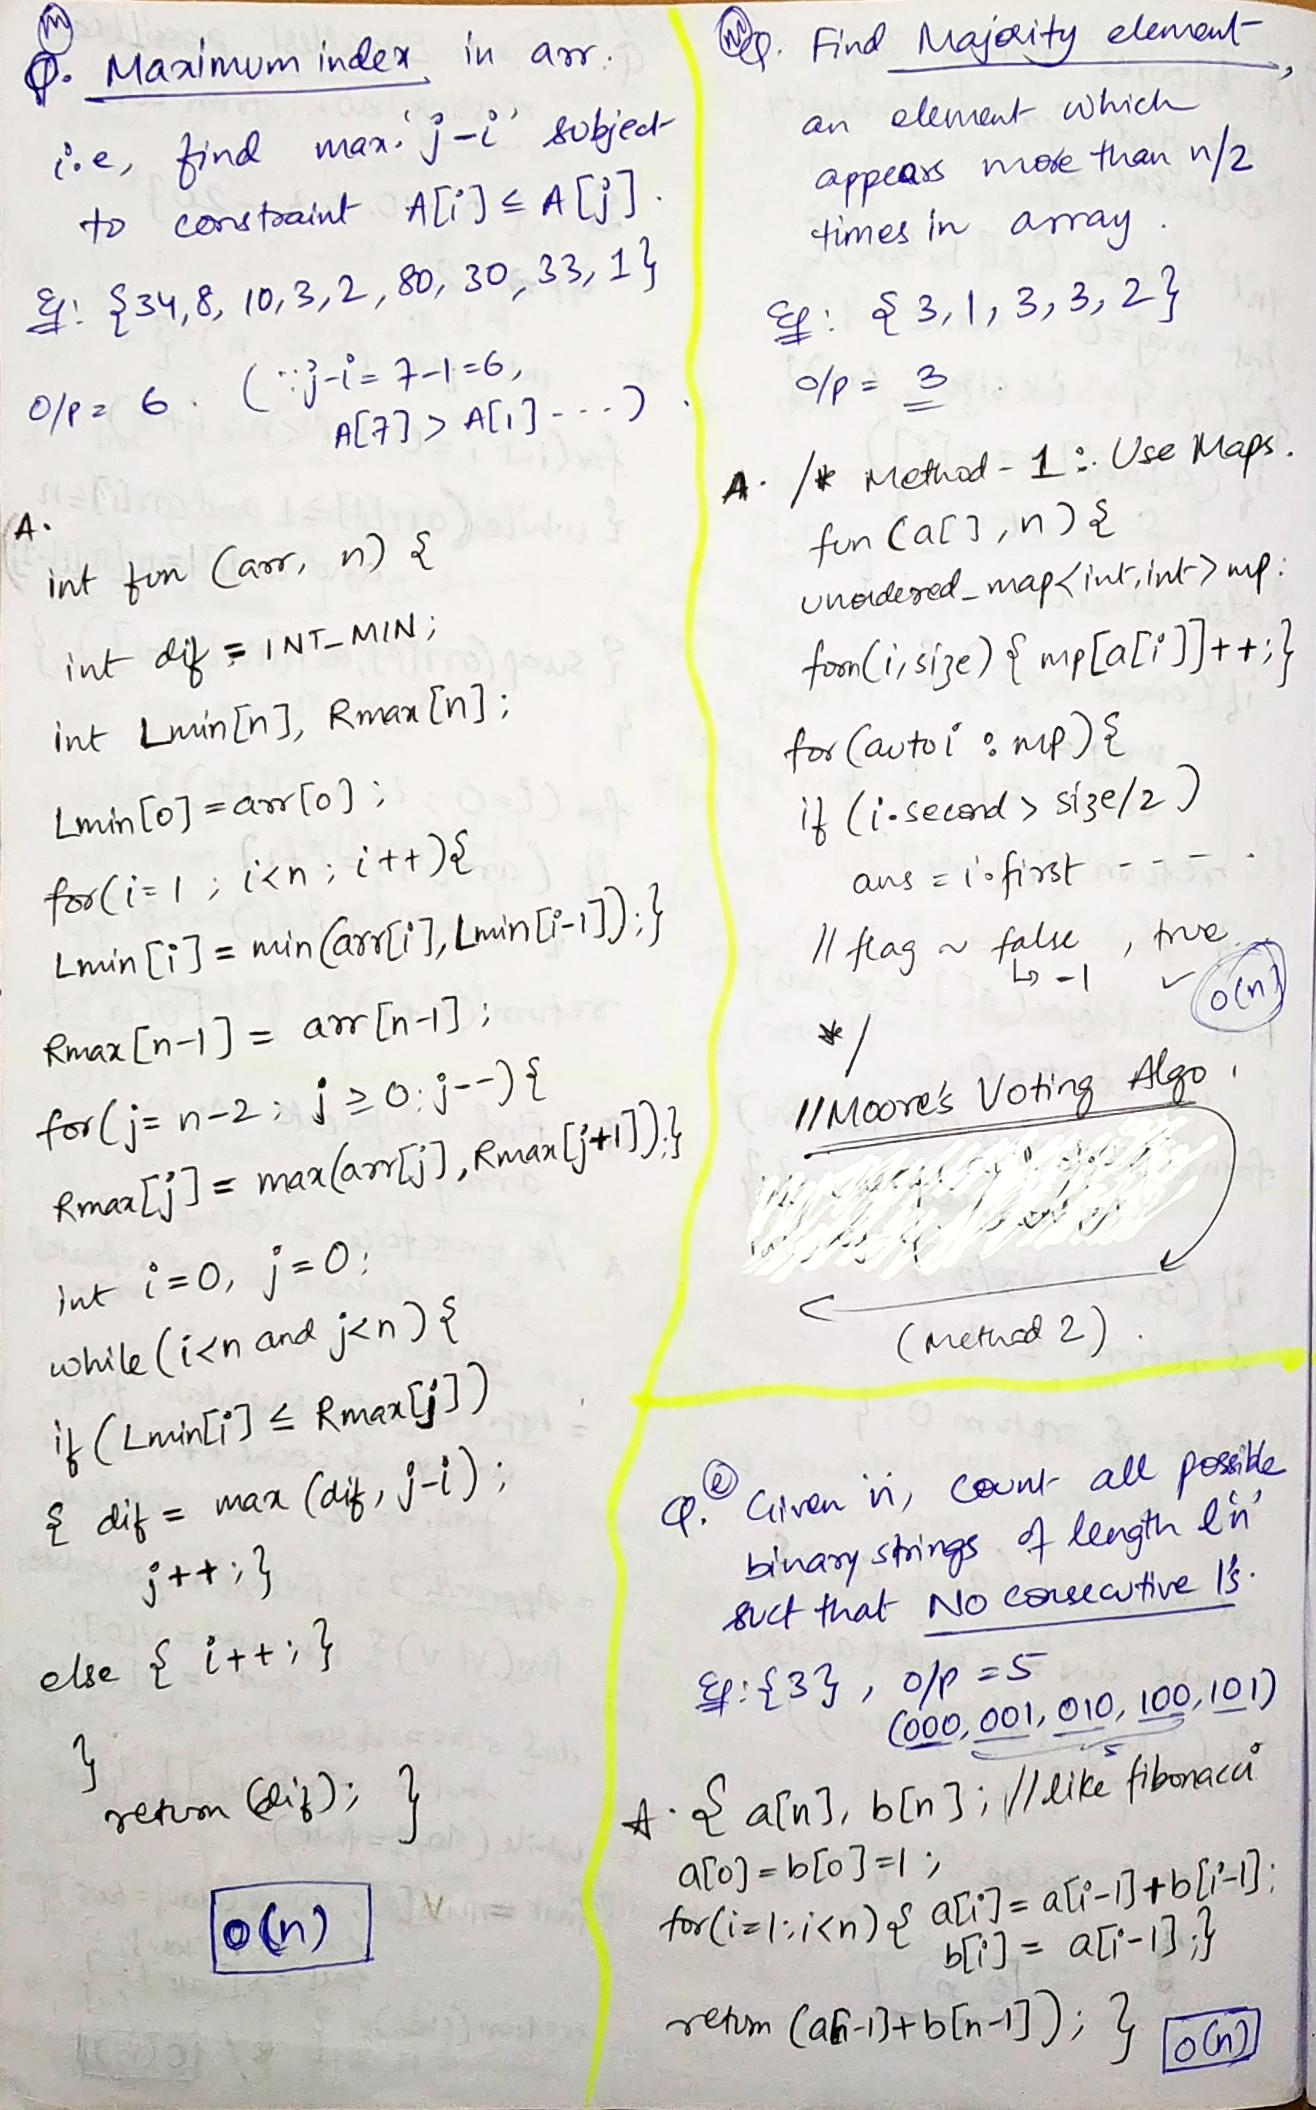 (M)
Q. Maximum index in arr.
i.e, find max. 'j-i' subject
to constraint A[i] ≤ A[j].
Eg: {34,8, 10,3,2,80,30,33,1}
O/p = 6. (∵ j-i = 7-1=6,
A[7] > A[1] - - - )
A.
int fun (arr, n) {
int dif = INT_MIN;
int Lmin[n], Rmax[n];
Lmin[0] = arr[0];
for(i=1; i<n; i++){
Lmin[i] = min(arr[i], Lmin[i-1]);}
Rmax[n-1] = arr[n-1];
for(j=n-2; j≥0; j--){
Rmax[j] = max(arr[j], Rmax[j+1]);}
int i=0, j=0;
while(i<n and j<n){
if (Lmin[i] ≤ Rmax[j])
{ dif = max (dif, j-i);
j++;}
else { i++;}
}
return (dif); }
O(n)
(M) Q. Find Majority element,
an element which
appears more than n/2
times in array.
Eg: {3,1,3,3,2}
O/p = 3
A. /* Method-1: Use Maps.
fun (a[],n){
unordered_map<int,int> mp;
forn(i,size) { mp[a[i]]++;}
for(auto i : mp){
if (i.second > size/2)
ans = i.first - - - .
// flag ~ false, true.
↳ -1 ✓
O(n)
*/
//Moore's Voting Algo.
(Method 2).
Q. (e) Given 'n', count all possible
binary strings of length 'n'
suct that No consecutive 1's.
Eg: {3}, O/p = 5
(000,001,010,100,101)
5
A. { a[n], b[n]; //like fibonacci
a[0] = b[0] = 1;
for(i=1;i<n){ a[i] = a[i-1]+b[i-1];
b[i] = a[i-1];}
return (a[n-1]+b[n-1]); }
O(n)